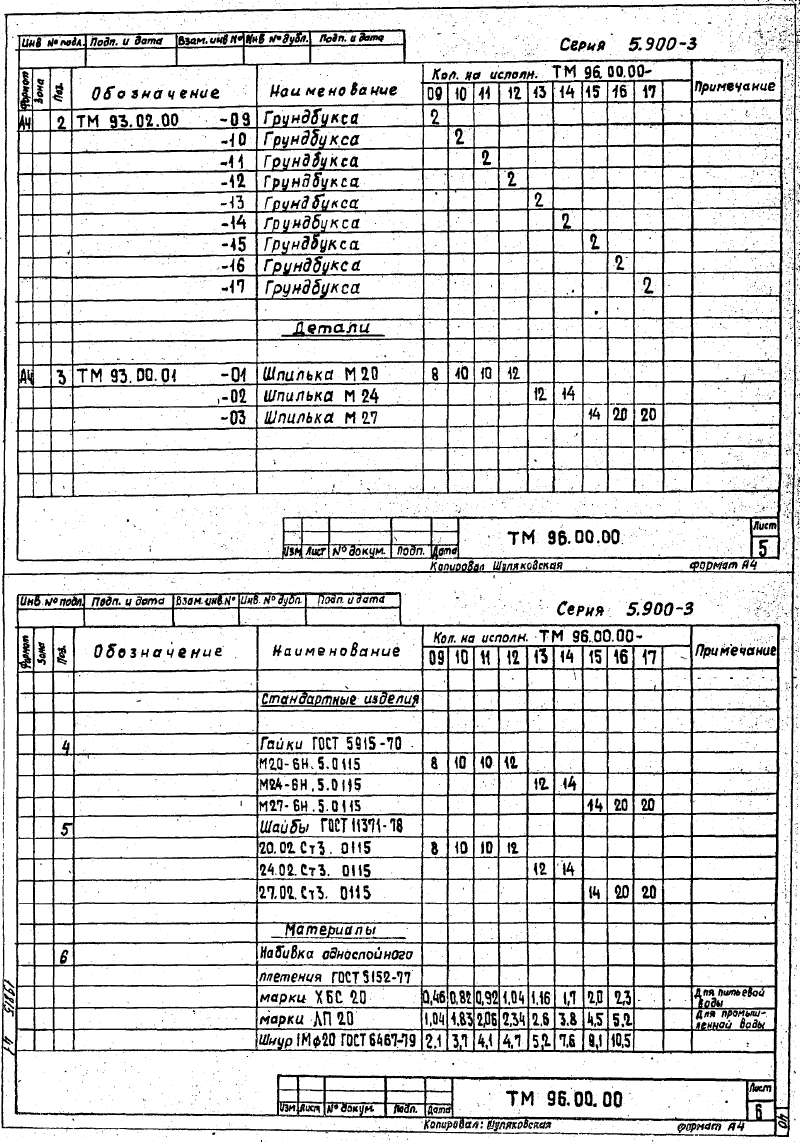 Инв № подл. Подп. и дата Взам. инв № Инв № дубл. Подп. и дата
Серия 5.900-3
Формат Зона Поз. Обозначение Наименование Кол. на исполн. ТМ 96.00.00- Примечание
09 10 11 12 13 14 15 16 17
А4 2 ТМ 93.02.00 -09 Грундбукса 2
-10 Грундбукса 2
-11 Грундбукса 2
-12 Грундбукса 2
-13 Грундбукса 2
-14 Грундбукса 2
-15 Грундбукса 2
-16 Грундбукса 2
-17 Грундбукса 2
Детали
А4 3 ТМ 93.00.01 -01 Шпилька М 20 8 10 10 12
-02 Шпилька М 24 12 14
-03 Шпилька М 27 14 20 20
Изм Лист № докум. Подп. Дата
ТМ 96.00.00
Лист
5
Копировал Шуляковская формат А4
Инв № подл. Подп. и дата Взам. инв. № Инв. № дубл. Подп. и дата
Серия 5.900-3
Формат Зона Поз. Обозначение Наименование Кол. на исполн. ТМ 96.00.00- Примечание
09 10 11 12 13 14 15 16 17
Стандартные изделия
4 Гайки ГОСТ 5915-70
М20-6Н.5.0115 8 10 10 12
М24-6Н.5.0115 12 14
М27-6Н.5.0115 14 20 20
5 Шайбы ГОСТ 11371-78
20.02.Ст3. 0115 8 10 10 12
24.02.Ст3. 0115 12 14
27.02.Ст3. 0115 14 20 20
Материалы
6 Набивка однослойного
плетения ГОСТ 5152-77
марки ХБС 20 0,46 0,82 0,92 1,04 1,16 1,7 2,0 2,3 Для питьевой воды
марки ЛП 20 1,04 1,83 2,06 2,34 2,6 3,8 4,5 5,2 Для промыш-ленной воды
Шнур 1Мф20 ГОСТ 6467-79 2,1 3,7 4,1 4,7 5,2 7,6 9,1 10,5
Изм. Лист № докум. Подп. Дата
ТМ 96.00.00
Лист
6
Копировал: Шуляковская формат А4
40